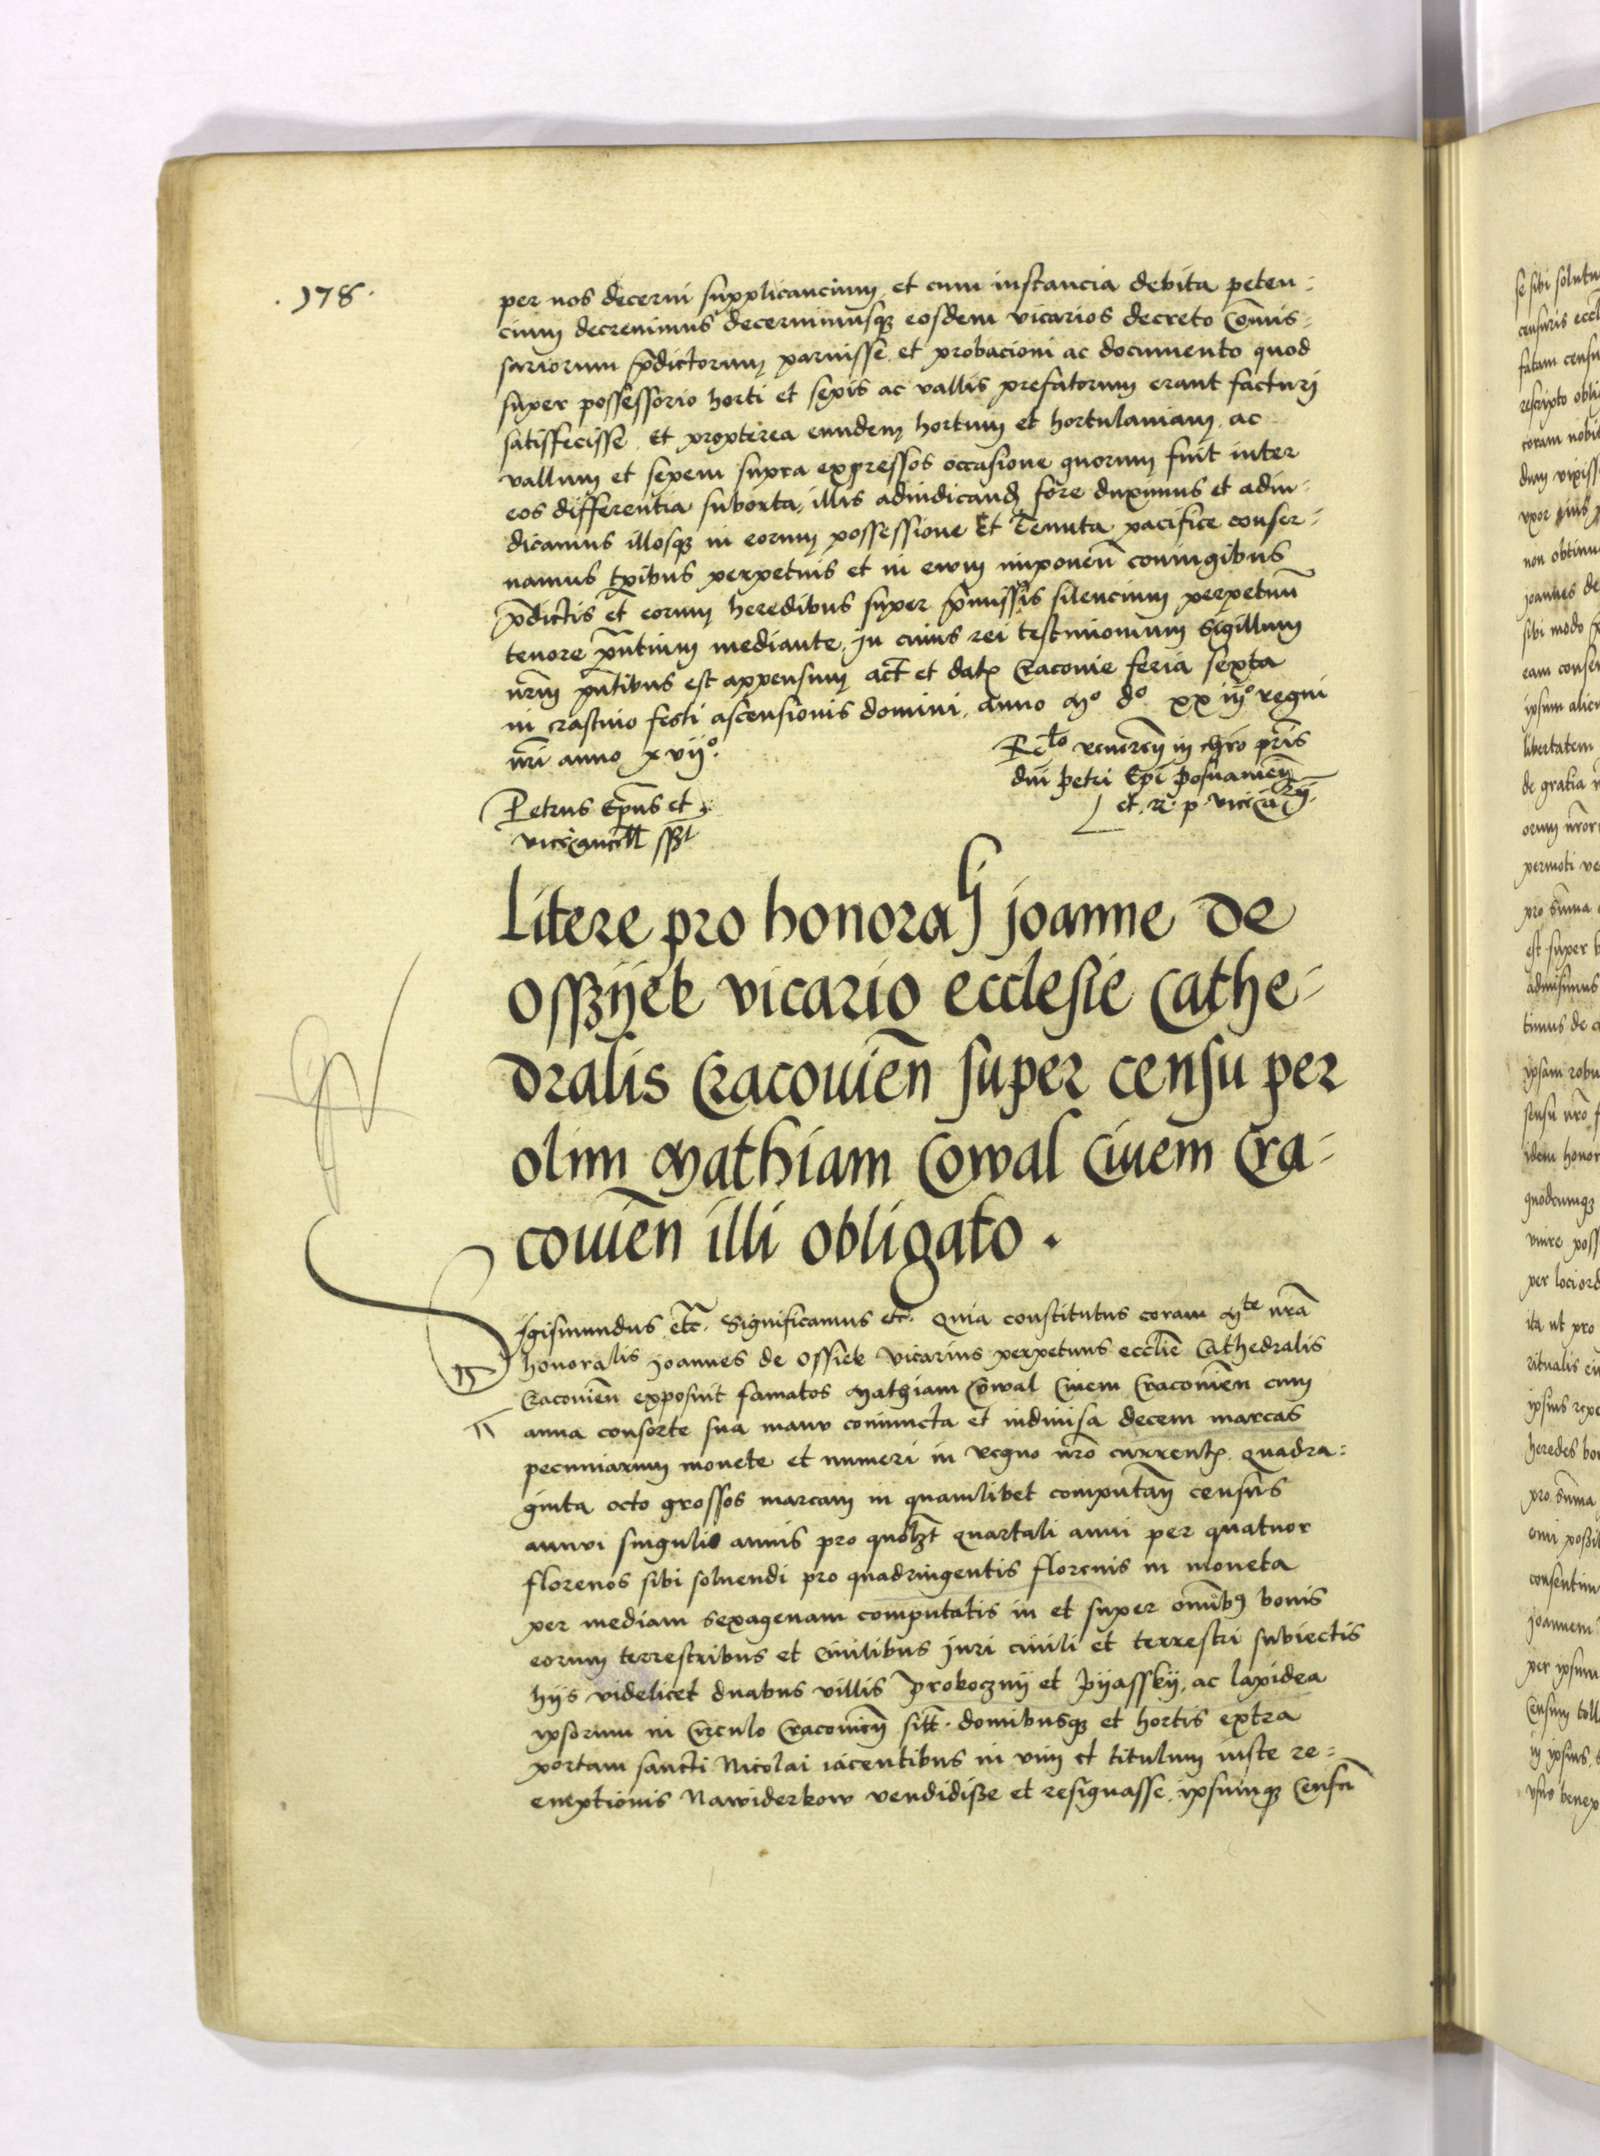 . 178 .
per nos decerni supplicancium et cum instancia debita peten:
cium decrevimus decernimusqꝫ eosdem vicarios decreto Com̄is:
sariorum p̄dictorum paruisse et probacioni ac documento quod
super possessorio horti et sepis ac vallis prefatorum erant facturi
satisfecisse. Et propterea eundem hortum et hortulaniam ac
vallum et sepem supra expressos occasione quorum fuit inter
eos differentia suborta, illis adiudicand fore duximus et adiu:
dicamus illosqꝫ in eorum possessione Et Tenuta pacifice conser:
vamus tp̄ibus perpetuis et in ewm imponen̄ coniugibus
p̄dictis et eorum heredibus super p̄missis silencium perpetuū
tenore p̄ntium mediante. In cuius rei testimonium Sigillum
nr̄m p̄ntibus est appensum act̄ et dat Cracovie feria sexta
in crastino festi ascensionis domini, anno Mº dº xx iijº regni
nr̄i anno xvijº.
Rel̄o reveren in chr̄o pr̄is
dni Petri Ep̄i Posnanien̄
et. R. p. vice
Petrus Ep̄us et
vicecancell sst
Litere pro honorali Joanne de
Osszyek vicario ecclesie Cathe:
dralis Cracouien̄ super censu per
olim Mathiam Cowal Ciuem Cra:
couien̄ illi obligato .
Sigismundus etc̄. Significamus etc. Quia constitutus coram Mte nr̄a
honoralis Joannes de Ossiek vicarius perpetuus ecclie̅ Cathedralis
Cracouien̄ exposuit famatos Mathiam Cowal Ciuem Cracouien̄ cum
anna consorte sua manu coniuncta et indiuisa decem marcas
pecuniarum monete et numeri in regno nr̄o current quadra:
ginta octo grossos marcam in quamlibet computan̄ census
annui singulis annis pro quolꝫt quartali anni per quatuor
florenos sibi soluendi pro quadringentis florenis in moneta
per mediam sexagenam computatis in et super om̄ibꝰ bonis
eorum terrestribus et Ciuilibus Juri ciuili et terrestri subiectis
hijs videlicet duabus villis Prokoczny et Pyassky, ac lapidea
ipsorum in Circulo Cracouien̄ sitt. domibusqꝫ et hortis extra
portam sancti Nicolai iacentibus in vim et titulum iuste re:
emptionis Nawiderkow vendidisse et resignasse, ipsumqꝫ Censū